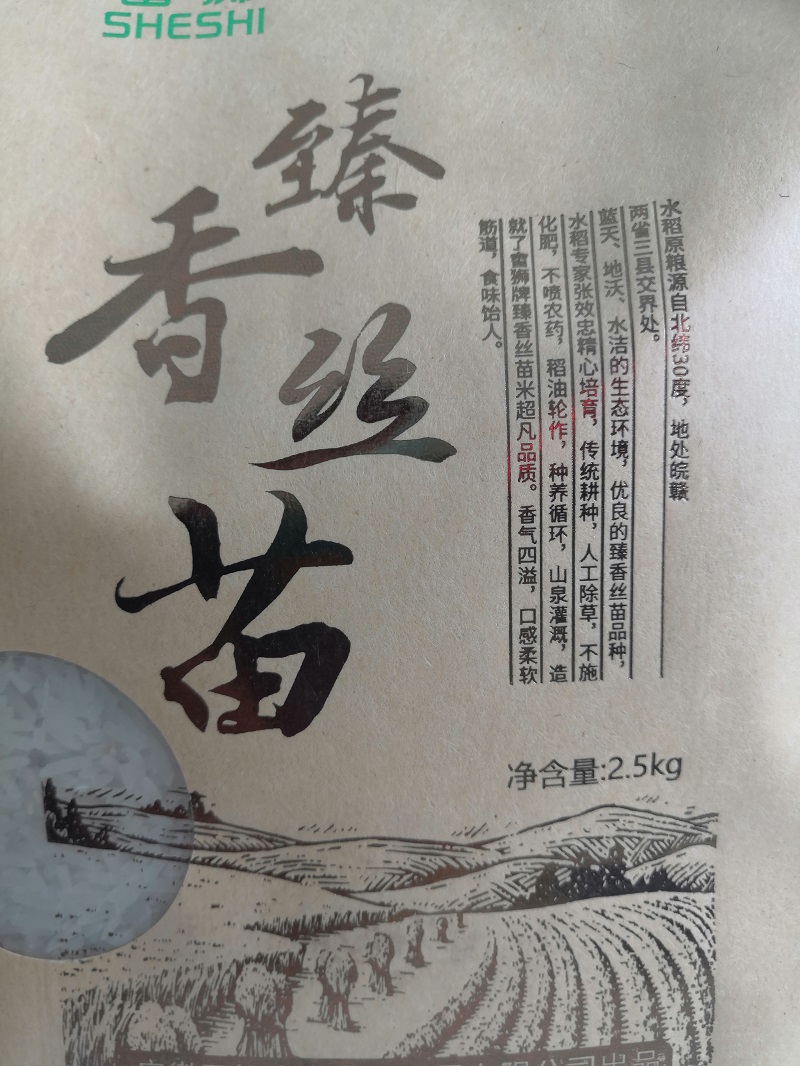 SHESHI
臻香丝苗
水稻原粮源自北纬30度，地处皖赣
两省三县交界处。
蓝天、地沃、水洁的生态环境，优良的臻香丝苗品种，
水稻专家张效忠精心培育，传统耕种，人工除草，不施
化肥，不喷农药，稻油轮作，种养循环，山泉灌溉，造
就了畲狮牌臻香丝苗米超凡品质。香气四溢，口感柔软
筋道，食味饴人。
净含量:2.5kg
有限公司出品